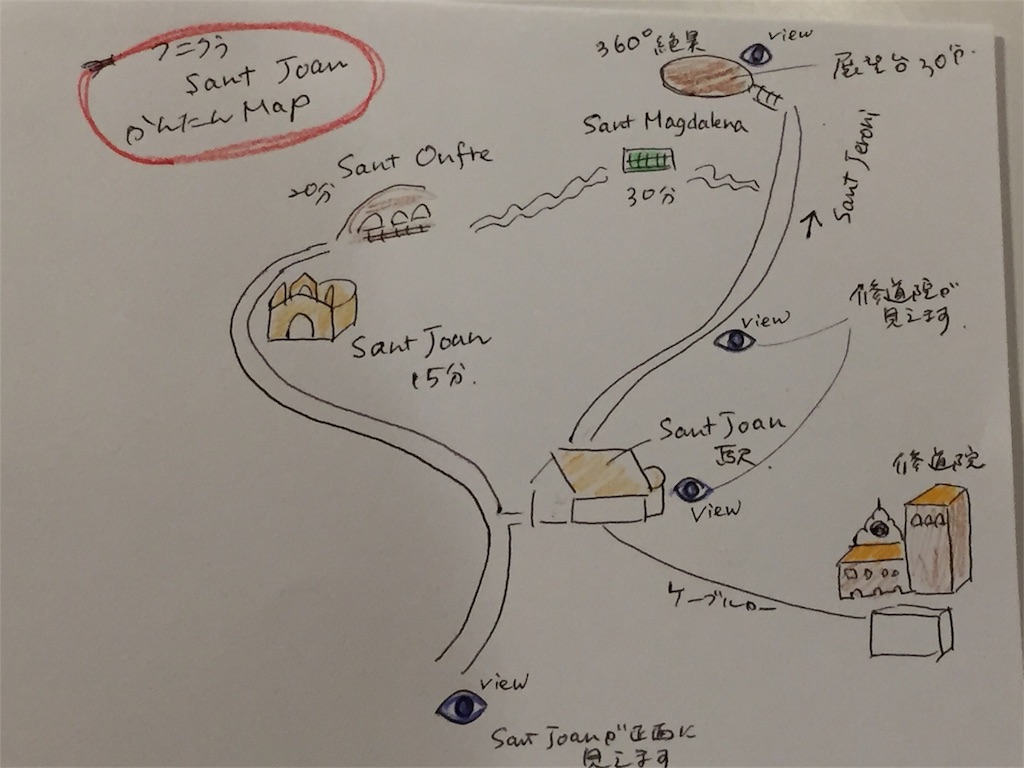 フニクラ
Sant Joan
かんたん Map
360° 絶景
view
展望台 30分
Sant Magdalena
30分
Sant Onfre
20分
Sant Jeroni
Sant Joan
15分.
view
修道院が
見えます.
Sant Joan
駅
view
修道院
ケーブルカー
view
Sant Joanが正面に
見えます